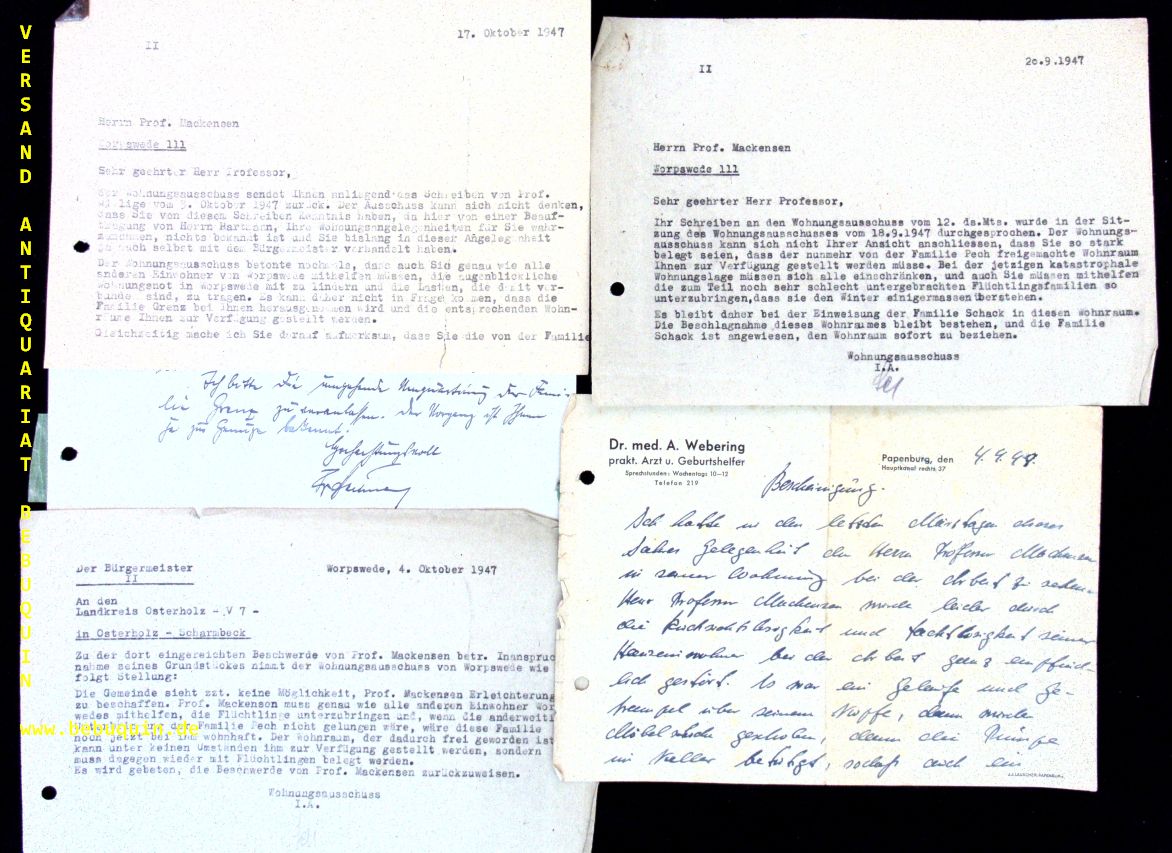 VERSAND ANTIQUARIAT BEBUQUIN
17. Oktober 1947
II
Herrn Prof. Mackensen
Worpswede 111
Sehr geehrter Herr Professor,
Der Wohnungsausschuss sendet Ihnen anliegend das Schreiben von Prof.
vom 3. Oktober 1947 zurück. Der Ausschuss kann sich nicht denken,
dass Sie von diesem Schreiben Kenntnis haben, da hier von einer Beauf-
tragung von Herrn Hartmann, Ihre Wohnungsangelegenheiten für Sie wahr-
zunehmen, nichts bekannt ist und Sie bislang in dieser Angelegenheit
ja auch selbst mit dem Bürgermeister verhandelt haben.
Der Wohnungsausschuss betonte nochmals, dass auch Sie genau wie alle
anderen Einwohner von Worpswede mithelfen müssen, die augenblickliche
Wohnungsnot in Worpswede mit zu lindern und die Lasten, die damit ver-
bunden sind, zu tragen. Es kann daher nicht in Frage kommen, dass die
Familie Grenz bei Ihnen herausgenommen wird und die entsprechenden Wohn-
räume Ihnen zur Verfügung gestellt werden.
Gleichzeitig mache ich Sie darauf aufmerksam, dass Sie die von der Familie
Ich bitte die umgehende Umquartierung der Fami-
lie Grenz zu veranlassen. Der Vorgang ist Ihnen
ja zur Genüge bekannt.
Hochachtungsvoll
20.9.1947
II
Herrn Prof. Mackensen
Worpswede 111
Sehr geehrter Herr Professor,
Ihr Schreiben an den Wohnungsausschuss vom 12. ds.Mts. wurde in der Sit-
zung des Wohnungsausschusses vom 18.9.1947 durchgesprochen. Der Wohnungs-
ausschuss kann sich nicht Ihrer Ansicht anschliessen, dass Sie so stark
belegt seien, dass der nunmehr von der Familie Pech freigemachte Wohnraum
Ihnen zur Verfügung gestellt werden müsse. Bei der jetzigen katastrophale
Wohnungslage müssen sich alle einschränken, und auch Sie müssen mithelfen
die zum Teil noch sehr schlecht untergebrachten Flüchtlingsfamilien so
unterzubringen,dass sie den Winter einigermassen überstehen.
Es bleibt daher bei der Einweisung der Familie Schack in diesen Wohnraum.
Die Beschlagnahme dieses Wohnraumes bleibt bestehen, und die Familie
Schack ist angewiesen, den Wohnraum sofort zu beziehen.
Wohnungsausschuss
I.A.
Der Bürgermeister
II
Worpswede, 4. Oktober 1947
An den
Landkreis Osterholz - V 7 -
in Osterholz - Scharmbeck
Zu der dort eingereichten Beschwerde von Prof. Mackensen betr. Inanspruc
nahme seines Grundstückes nimmt der Wohnungsausschuss von Worpswede wie
folgt Stellung:
Die Gemeinde sieht zzt. keine Möglichkeit, Prof. Mackensen Erleichterung
zu beschaffen. Prof. Mackenson muss genau wie alle anderen Einwohner Wor
wedes mithelfen, die Flüchtlinge unterzubringen und, wenn die anderweiti
der Familie Pech nicht gelungen wäre, wäre diese Familie
noch jetzt bei ihm wohnhaft. Der Wohnraum, der dadurch frei geworden ist
kann unter keinen Umständen ihm zur Verfügung gestellt werden, sondern
muss dagegen wieder mit Flüchtlingen belegt werden.
Es wird gebeten, die Beschwerde von Prof. Mackensen zurückzuweisen.
Wohnungsausschuss
I.A.
www.bebuquin.de
Dr. med. A. Webering
prakt. Arzt u. Geburtshelfer
Sprechstunden: Wochentags 10—12
Telefon 219
Papenburg, den 4.9.47.
Hauptkanal rechts 37
Bescheinigung.
Ich hatte in den letzten dieses
Jahres Gelegenheit den Herrn Professor Mackensen
in seiner Wohnung bei der Arbeit zu sehen.
Herr Professor Mackensen wurde leider durch
die Rücksichtslosigkeit und Taktlosigkeit seiner
Hauseinwohner bei der Arbeit ganz empfind-
lich gestört. Es war ein Gelaufe und Ge-
trampel über seinem Kopfe, dann wurden
Möbelstücke geschoben, dann die Pumpe
im Keller betätigt, sodaß auch ein